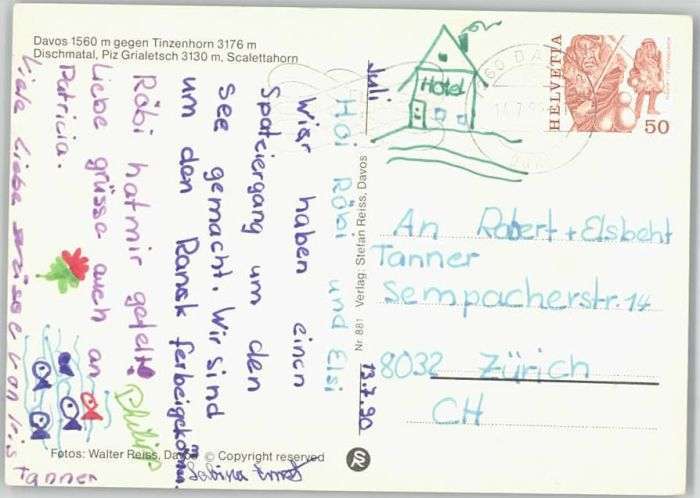 Davos 1560 m gegen Tinzenhorn 3176 m
Dischmatal, Piz Grialetsch 3130 m, Scalettahorn
Juli
Hoi Röbi und Elsi
Wiar haben einen
Spatziergang um den
see gemacht. Wir sind
um den Rank ferbeigekommen.
Röbi hat mir gefelt!
Liebe grüsse auch an
Patricia.
Philipp
Sabina
Tanner
Hotel
HELVETIA
50
An Robert + Elsbeht
Tanner
Sempacherstr. 14
8032 Zürich
CH
13.7.90
Nr 881 Verlag: Stefan Reiss, Davos
Fotos: Walter Reiss, Davos © Copyright reserved